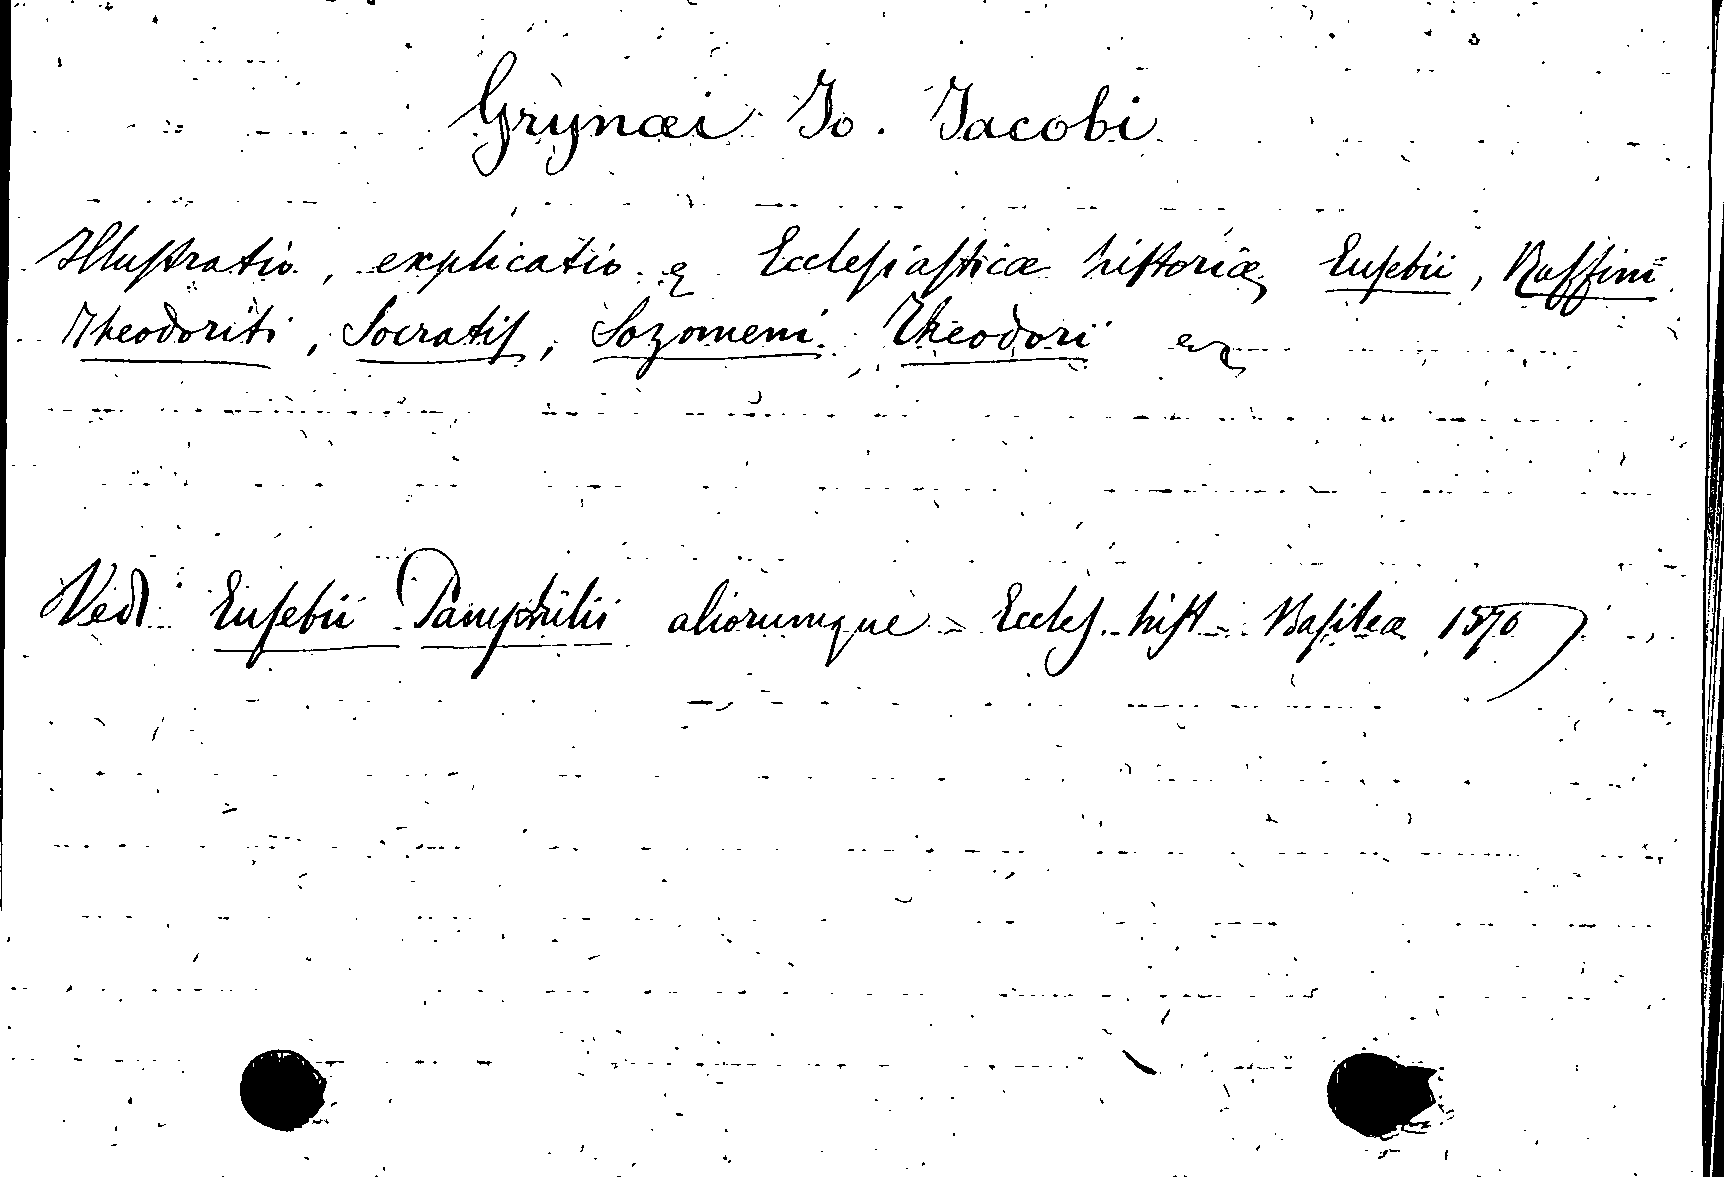 Grynæi Io. Jacobi
Illustratio, explicatio Ecclesiasticæ historiæ, Eusebii, Ruffini
Theodoriti, Socratis, Sozomeni. Theodori
Ved Eusebii Pamphilii aliorumque - Eccles. hist - Basileæ 1570